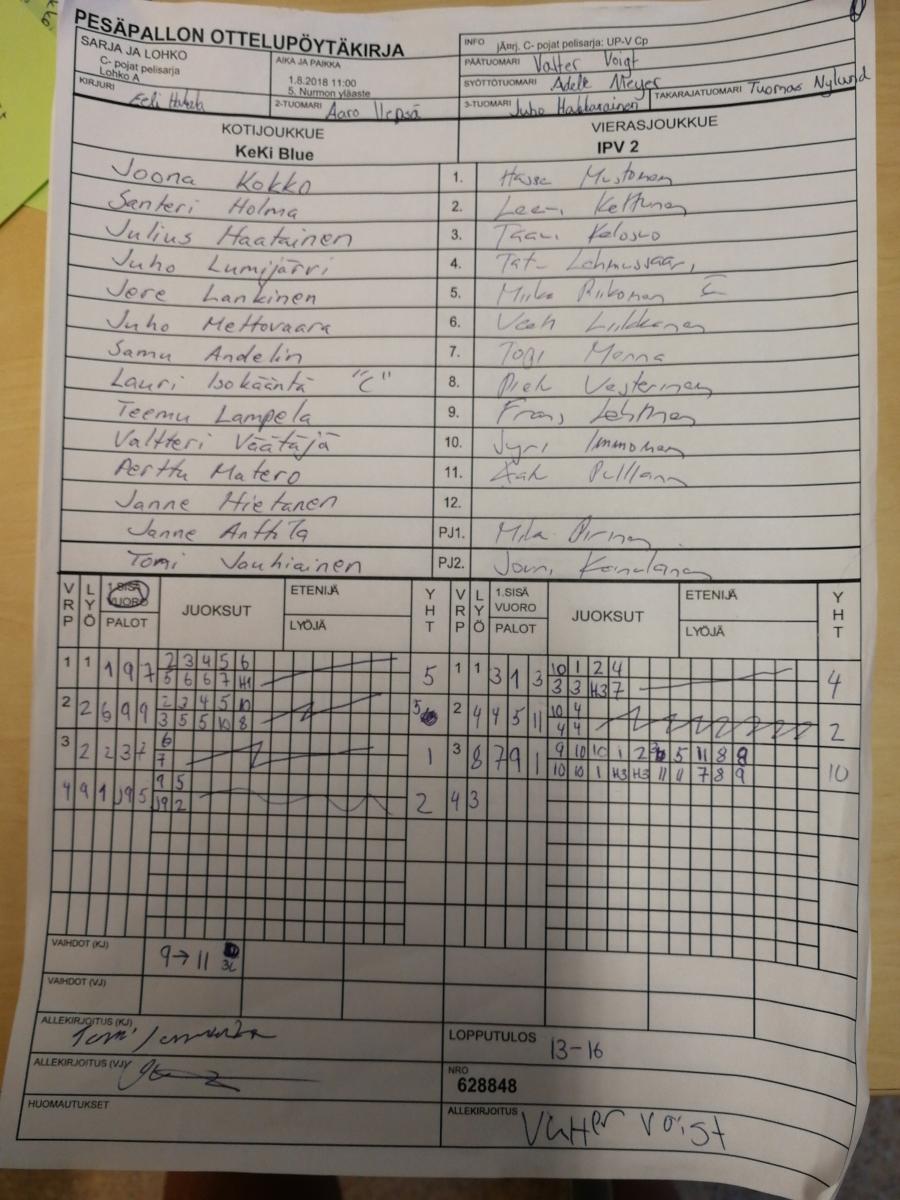 PESÄPALLON OTTELUPÖYTÄKIRJA
SARJA JA LOHKO
C- pojat pelisarja
Lohko A
AIKA JA PAIKKA
1.8.2018 11:00
5. Nurmon yläaste
INFO jÄnrj. C- pojat pelisarja: UP-V Cp
PÄÄTUOMARI Valter Voigt
SYÖTTÖTUOMARI Adele Meyer
KIRJURI Eeli
2-TUOMARI Aaro
3-TUOMARI Juho
TAKARAJATUOMARI Tuomas Nylund
KOTIJOUKKUE
KeKi Blue
VIERASJOUKKUE
IPV 2
Joona Kokko 1. Mustonen
Santeri Holma 2. Kettunen
Julius Haatainen 3.
Juho Lumijärvi 4. Lehmussaari
Jere Lankinen 5. Miika Riikonen C
Juho Mettovaara 6. Liikkanen
Samu Andelin 7. Topi Menna
Lauri Isokääntä "C" 8. Vesterinen
Teemu Lampela 9. Frans Lehtinen
Valtteri Väätäjä 10. Jyri Immonen
Perttu Matero 11.
Janne Hietanen 12.
Janne Anttila PJ1. Mika Pirinen
Tomi Jauhiainen PJ2. Jouni Kainulainen
VRP LYÖ 1.SISÄ VUORO PALOT JUOKSUT ETENIJÄ LYÖJÄ YHT VRP LYÖ 1.SISÄ VUORO PALOT JUOKSUT ETENIJÄ LYÖJÄ YHT
1 1 1 9 7 2 3 4 5 6 5 1 1 3 1 3 10 1 2 4 4
5 6 6 7 H1 3 3 H3 7
2 2 6 9 9 2 3 4 5 10 5 2 4 4 5 11 10 4 2
3 5 5 10 8 4 4
3 2 2 3 7 6 1 3 8 7 9 1 9 10 10 1 2 5 11 8 9 10
7 10 10 1 H3 H3 11 11 7 8 9
4 9 1 J9 5 9 5 2 4 3
J9 2
VAIHDOT (KJ) 9→11
VAIHDOT (VJ)
ALLEKIRJOITUS (KJ)
LOPPUTULOS 13-16
ALLEKIRJOITUS (VJ)
NRO
628848
HUOMAUTUKSET
ALLEKIRJOITUS Valter Voigt